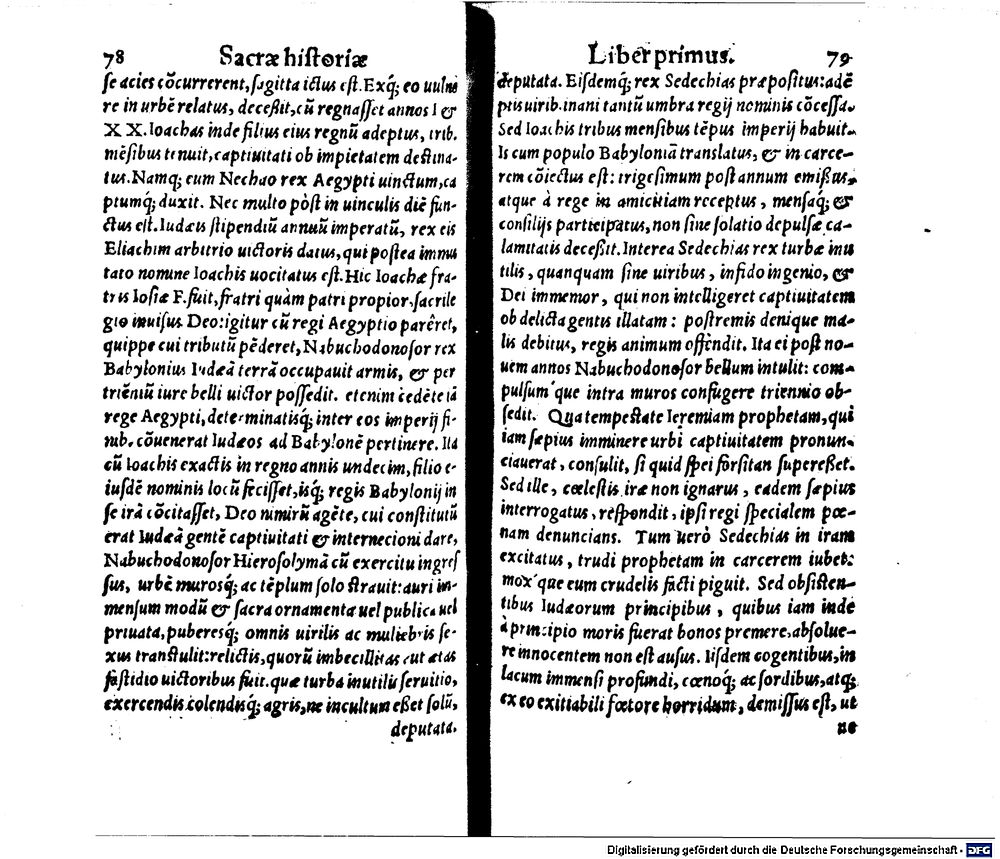 78 Sacræ historiæ
se acies cõcurrerent, sagitta ictus est. Exq́; eo uulne
re in urbẽ relatus, deceßit, cũ regnasset annos I &
X X. Ioachas inde filius eius regnũ adeptus, trib.
mẽsibus tenuit, captiuitati ob impietatem destina-
tus. Namq; eum Nechao rex Aegypti uinctum, ca
ptumq́; duxit. Nec multo pòst in uinculis diẽ fun-
ctus est. Iudæis stipendiũ annuũ imperatũ, rex eis
Eliachim arbitrio uictoris datus, qui postea immu
tato nomine Ioachis uocitatus est. Hic Ioachæ fra-
tris Iosiæ F. fuit, fratri quàm patri propior, sacrile
gio inuisus Deo: igitur cũ regi Aegyptio parêret,
quippe cui tributũ pẽderet, Nabuchodonosor rex
Babylonius Iudæã terrã occupauit armis, & per
triẽniũ iure belli uictor possedit. etenim cedẽte iã
rege Aegypti, determinatisq́; inter eos imperij fi-
nib. cõuenerat Iudæos ad Babylonẽ pertinere. Ita
cũ Ioachis exactis in regno annis undecim, filio e-
iusdẽ nominis locũ fecisset, isq́; regis Babylonij in
se irã cõcitasset, Deo nimirũ agẽte, cui constitutũ
erat Iudæã gentẽ captiuitati & internecioni dare,
Nabuchodonosor Hierosolymã cũ exercitu ingres
sus, urbẽ murosq́; ac tẽplum solo strauit: auri im-
mensum modũ & sacra ornamenta uel publica uel
priuata, puberesq́; omnis uirilis ac muliebris se-
xus transtulit: relictis, quorũ imbecillitas aut ætas
fastidio uictoribus fuit. quæ turba inutilis seruitio,
exercendis colendisq́; agris, ne incultum eßet solũ,
deputata.
Liber primus. 79
deputata. Eisdemq́; rex Sedechias præpositus: adẽ
ptis uirib. inani tantũ umbra regij nominis cõcessa.
Sed Ioachis tribus mensibus tẽpus imperij habuit.
Is cum populo Babyloniã translatus, & in carce-
rem cõiectus est: trigesimum post annum emißus,
atque à rege in amicitiam receptus, mensaq́; &
consilijs participatus, non sine solatio depulsæ ca-
lamitatis deceßit. Interea Sedechias rex turbæ inu
tilis, quanquam sine uiribus, infido ingenio, &
Dei immemor, qui non intelligeret captiuitatem
ob delicta gentis illatam: postremis denique ma-
lis debitus, regis animum offendit. Ita ei post no-
uem annos Nabuchodonosor bellum intulit: com-
pulsum que intra muros confugere triennio ob-
sedit. Qua tempestate Ieremiam prophetam, qui
iam sæpius imminere urbi captiuitatem pronun-
ciauerat, consulit, si quid spei forsitan supereßet.
Sed ille, cœlestis iræ non ignarus, eadem sæpius
interrogatus, respondit, ipsi regi specialem pœ-
nam denuncians. Tum uerò Sedechias in iram
excitatus, trudi prophetam in carcerem iubet:
mox que eum crudelis facti piguit. Sed obsisten-
tibus Iudæorum principibus, quibus iam inde
à principio moris fuerat bonos premere, absolue-
re innocentem non est ausus. Iisdem cogentibus, in
lacum immensi profundi, cœnoq́; ac sordibus, atq́;
ex eo exitiabili fœtore horridum, demissus est, ut
ne
Digitalisierung gefördert durch die Deutsche Forschungsgemeinschaft - DFG